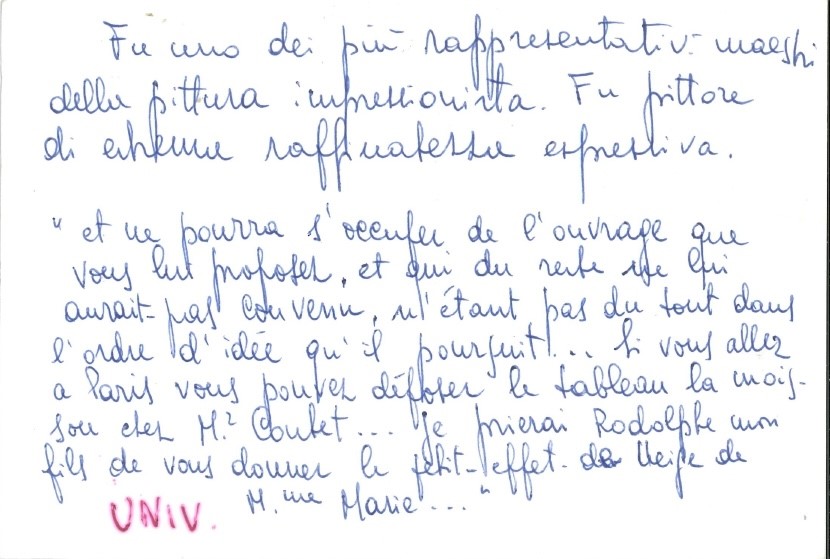 Fu uno dei più rappresentativi maestri
della pittura impressionista. Fu pittore
di estrema raffinatezza espressiva.
" et ne pourra s'occuper de l'ouvrage que
vous lui proposez, et qui du reste ne lui
aurait-pas convenu, n'étant pas du tout dans
l'ordre d'idée qu'il poursuit!... Si vous allez
a Paris vous pouvez déposer le tableau la mois-
son chez M.r Contet... Je prierai Rodolphe mon
fils de vous donner le petit-effet de Neige de
M.me Marie..."
UNIV.